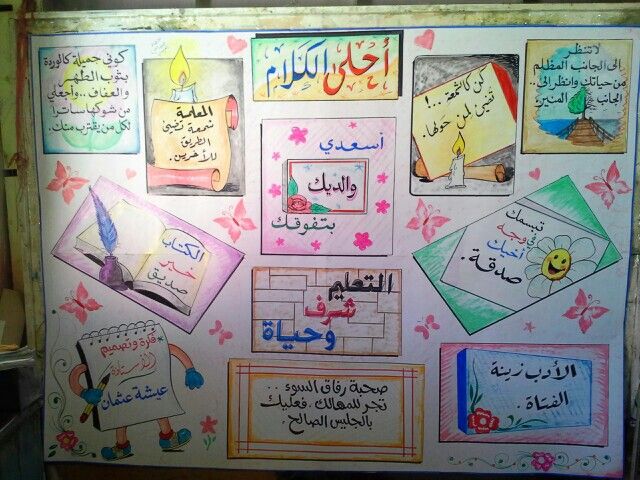 أحلى الكلام
لا تنظر
إلى الجانب المظلم
من حياتك وانظر إلى..
الجانب المنير
كن كالشمعة..!
تضيئ لمن حولها.
المعلمة
شمعة تضيئ
الطريق
للآخرين.
كوني جميلة كالوردة
بثوب الطهر
والعفاف...واجعلي
من شوكها ساترا
لكل من يقترب منك.
أسعدي
والديك
بتفوقك
تبسمك
في وجه
أخيك
صدقة.
الكتاب
خير
صديق
التعليم
شرف
وحياة
الأدب زينة
الفتاة.
صحبة رفاق السوء...
تجر للمهالك. فعليك
بالجليس الصالح.
فكرة وتصميم
الأستاذة
عيشة عثمان